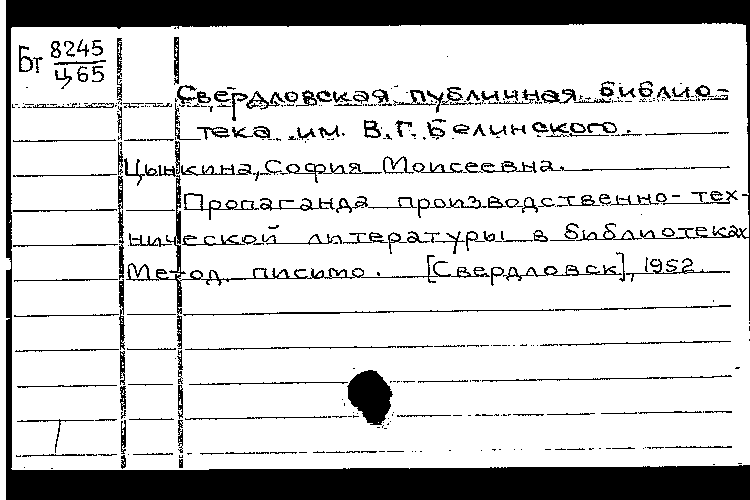 Бт 8245
Ц65
Свердловская публичная библио-
тека им. В.Г. Белинского.
Цынкина, София Моисеевна.
Пропаганда производственно-тех-
нической литературы в библиотеках
Метод. письмо. [Свердловск], 1952.